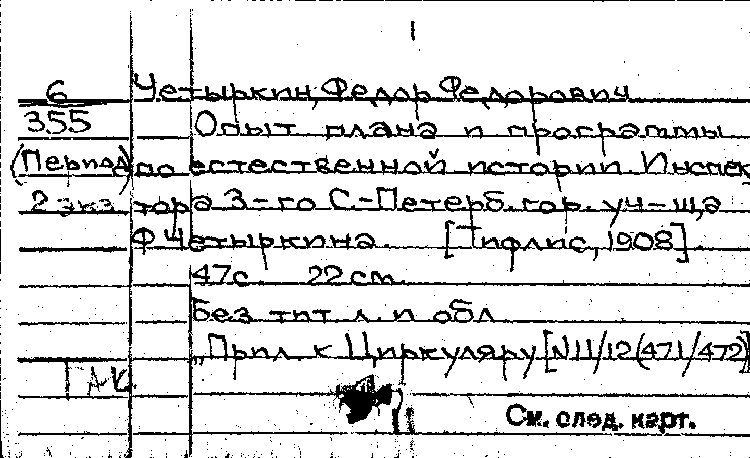 1
6 Четыркин, Федор Федорович
355 Опыт плана и программы
(Период) по естественной истории. Инспек
2 экз. тора 3-го С.-Петерб. гор. уч-ща
Ф. Четыркина. [Тифлис, 1908].
47с. 22см.
Без тит. л. и обл.
"Прил. к Циркуляру [N11/12(471/472)
См. след. карт.